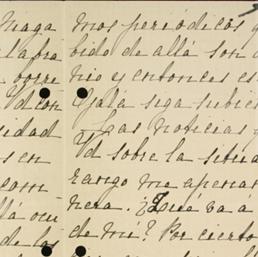 maga
la fra
Vd con
sidad
s en
com
llá ocu
de los
mos periódicos q
bido de allá son d
nio y entonces es
Ojalá siga subien
Las noticias q
Vd sobre la situa
rango me apenan
nera. ¿Qué va á
de mí? Por cierto